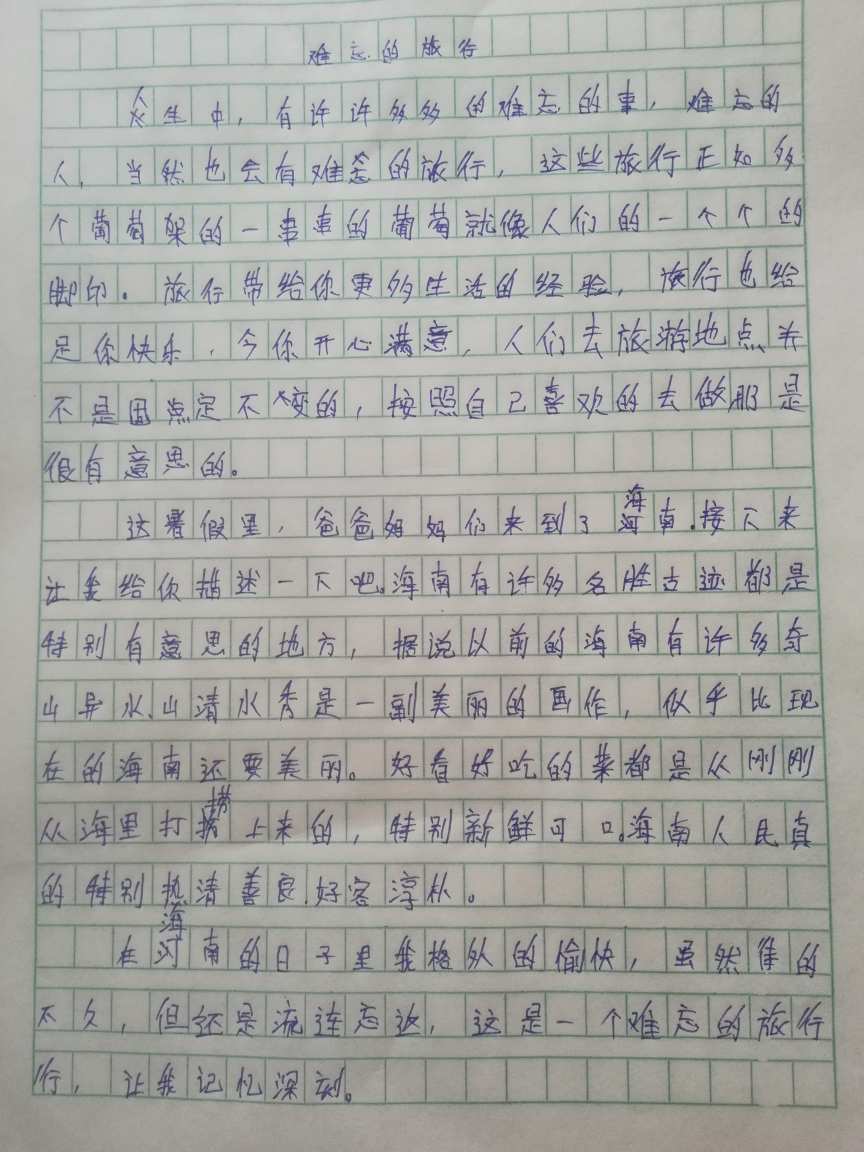 难忘的旅行
人生中，有许许多多的难忘的事，难忘的
人，当然也会有难忘的旅行，这些旅行正如多
个葡萄架的一串串的葡萄就像人们的一个个的
脚印。旅行带给你更多生活的经验，旅行也给
足你快乐，令你开心满意，人们去旅游地点并
不是固点定不变的，按照自己喜欢的去做那是
很有意思的。
这暑假里，爸爸妈妈们来到了海南.接下来
让我给你描述一下吧。海南有许多名胜古迹都是
特别有意思的地方，据说以前的海南有许多奇
山异水、山清水秀是一副美丽的画作，似乎比现
在的海南还要美丽。好看好吃的菜都是从刚刚
从海里打捞上来的，特别新鲜可口。海南人民真
的特别热清善良.好客淳朴。
在海南的日子里我格外的愉快，虽然隹的
不久，但还是流连忘返，这是一个难忘的旅行
行，让我记忆深刻。